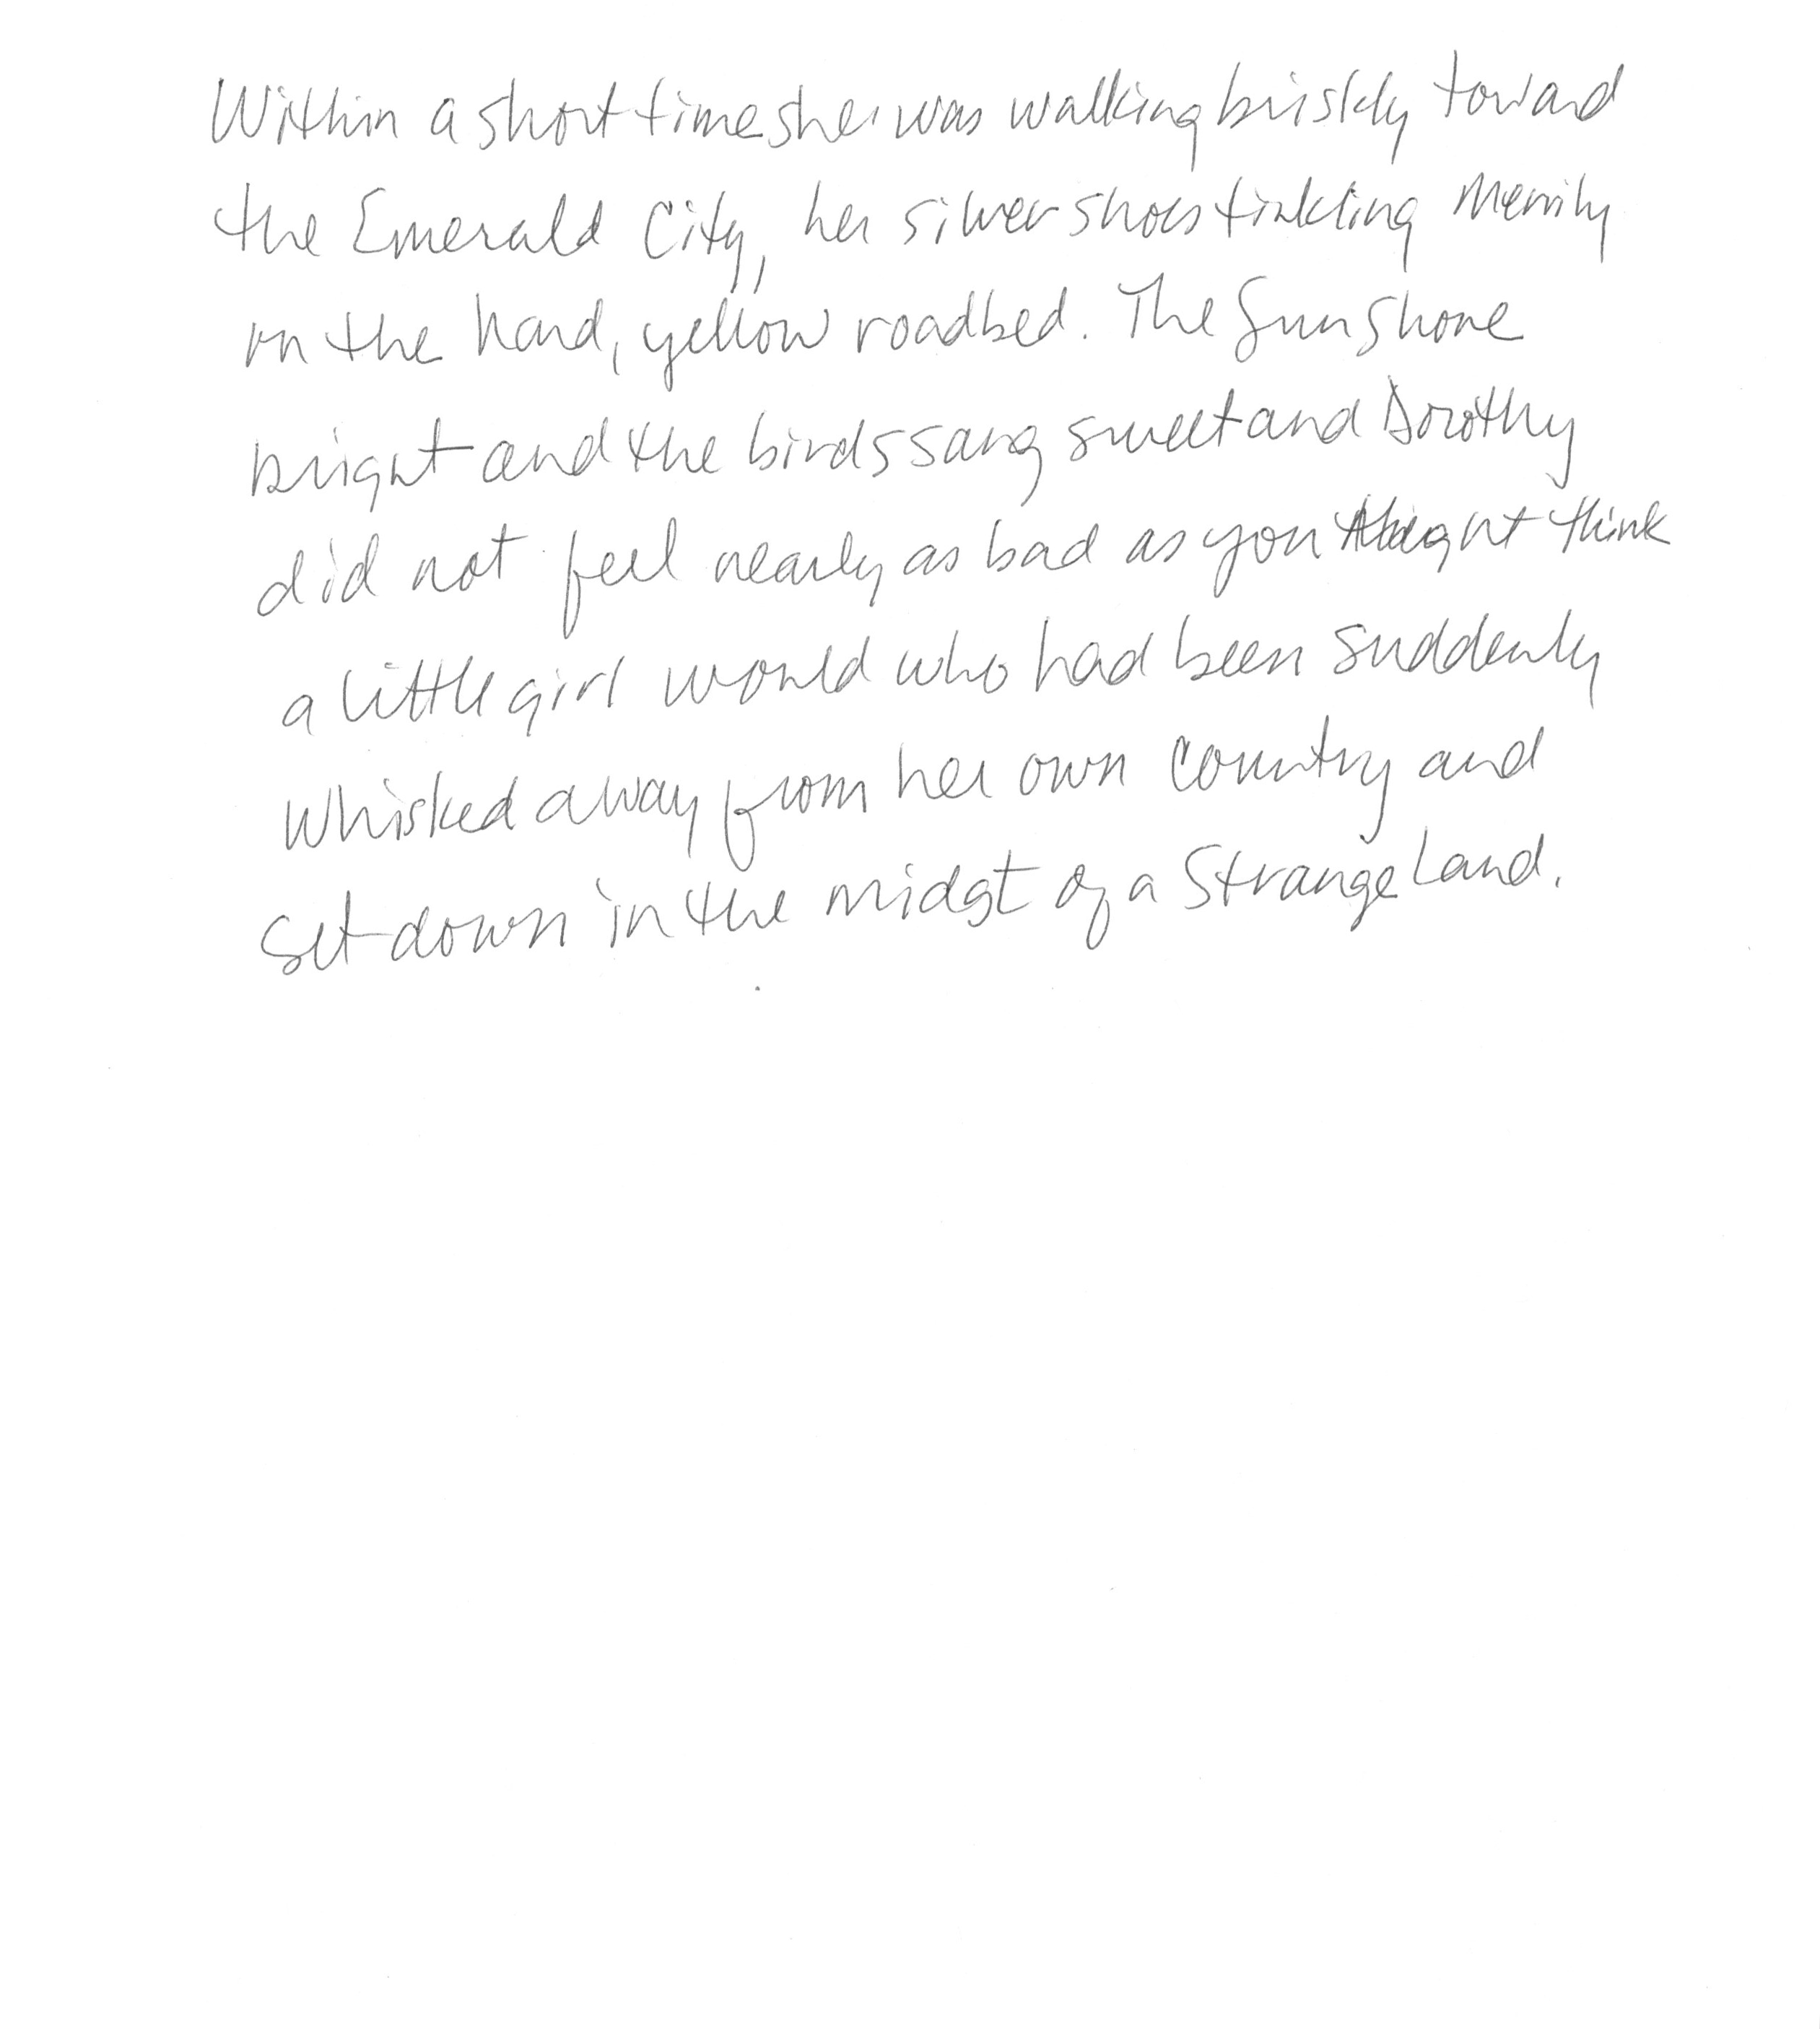 Within a short time she was walking briskly toward
the Emerald City, her silver shoes tinkling merrily
on the hard, yellow roadbed. The Sun Shone
bright and the birds sang sweet and Dorothy
did not feel nearly as bad as you might think
a little girl would who had been suddenly
whisked away from her own country and
set down in the midst of a Strange Land.